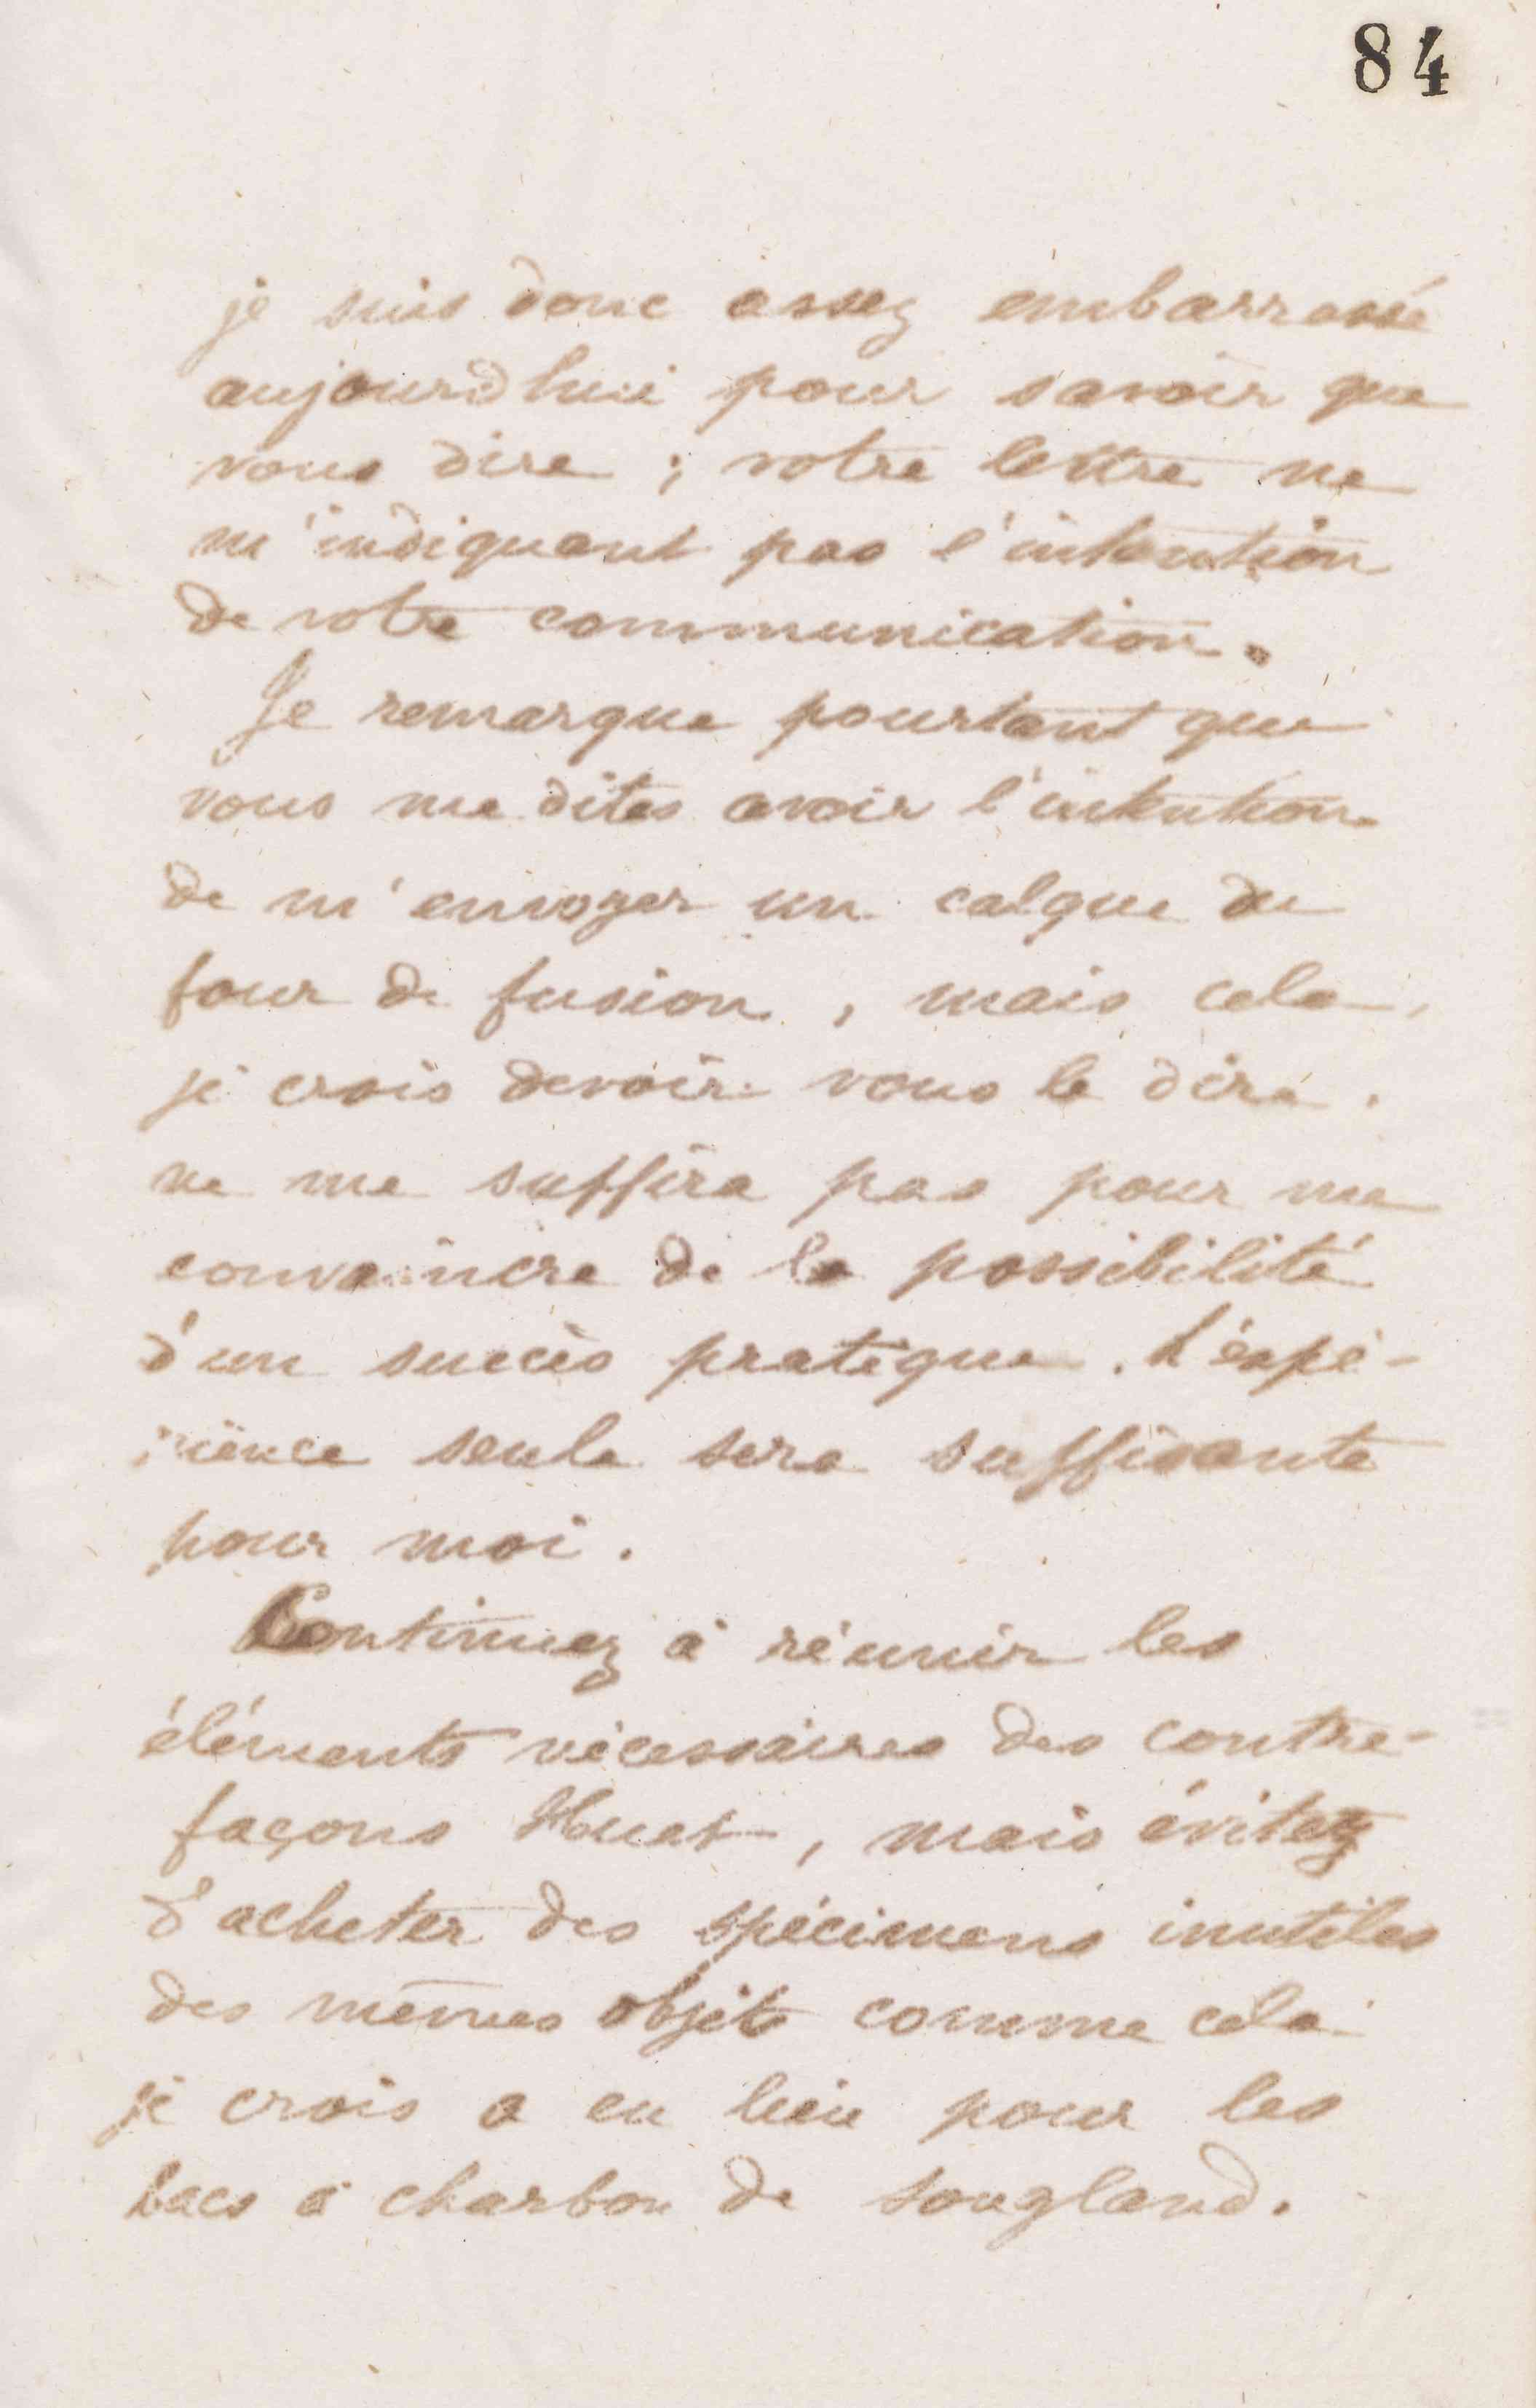 84
je suis donc assez embarrassé
aujourd'hui pour savoir que
vous dire ; votre lettre ne
m'indiquant pas l'intention
de votre communication.
Je remarque pourtant que
vous me dites avoir l'intention
de m'envoyer un calque du
four de fusion, mais cela,
je crois devoir vous le dire.
ne me suffira pas pour me
convaincre de la possibilité
d'un succès pratique. L'expé-
rience seule sera suffisante
pour moi.
Continuez à réunir les
éléments nécessaires des contre-
façons Huet, mais évitez
d'acheter des spécimens inutiles
des mêmes objets comme cela
je crois a eu lieu pour les
bacs à charbon de Sougland.